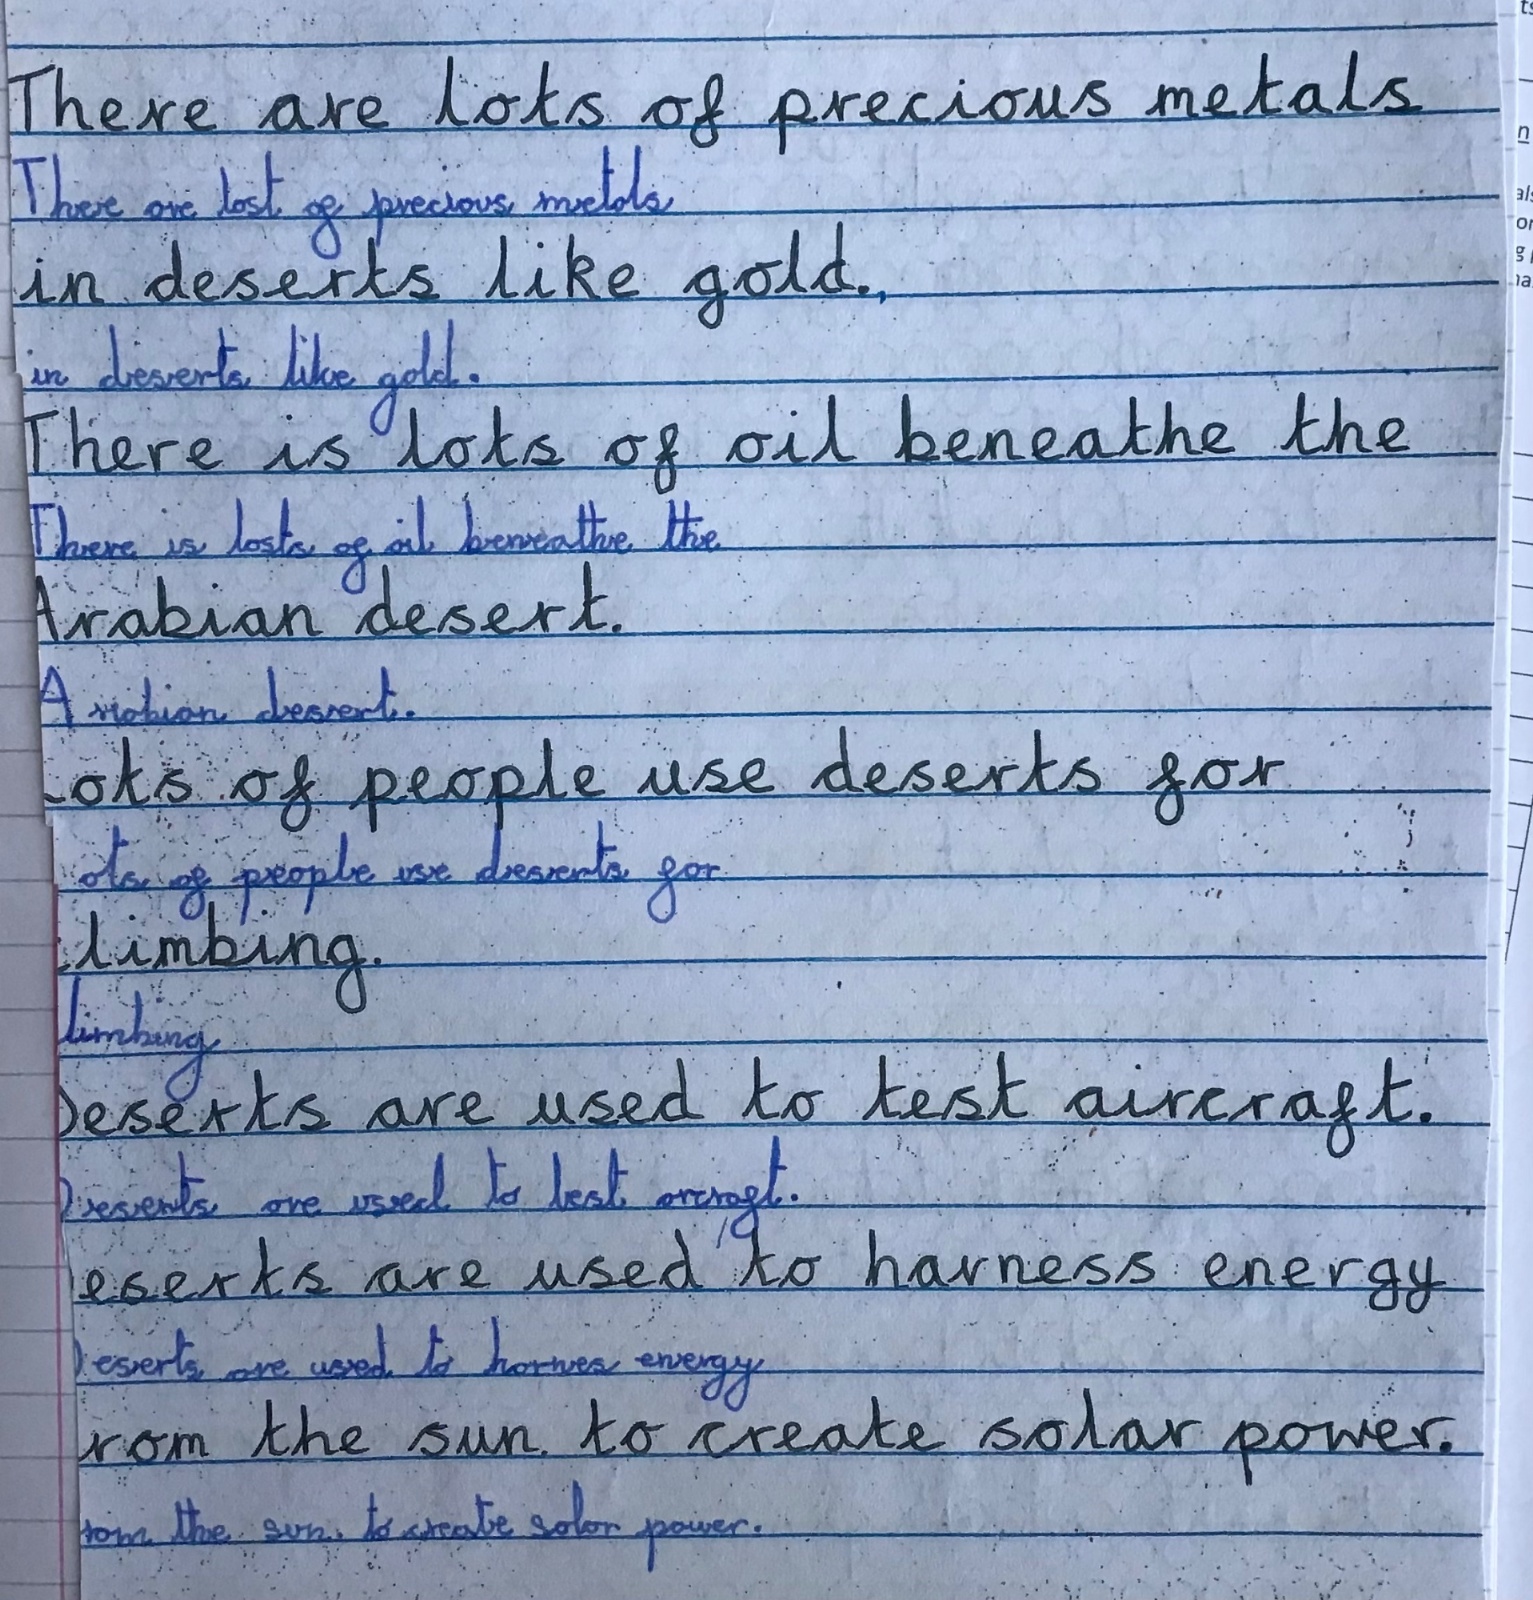 There are lots of precious metals
There are lost of precious metals
in deserts like gold.,
in deserts like gold.
There is lots of oil beneathe the
There is losts of oil beneathe the
Arabian desert.
Arabian desert.
Lots of people use deserts for
ots of people use deserts for
climbing.
limbing
Deserts are used to test aircraft.
Deserts are used to test arcraft.
eserts are used to harness energy
Deserts are used to harnes energy
rom the sun. to create solar power.
rom the sun. to create solar power.